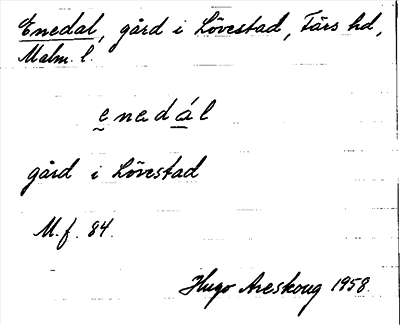 Enedal, gård i Lövestad, Färs hd,
Malm. l.
ḛnedál
gård i Lövestad
M.f. 84.
Hugo Areskoug 1958.